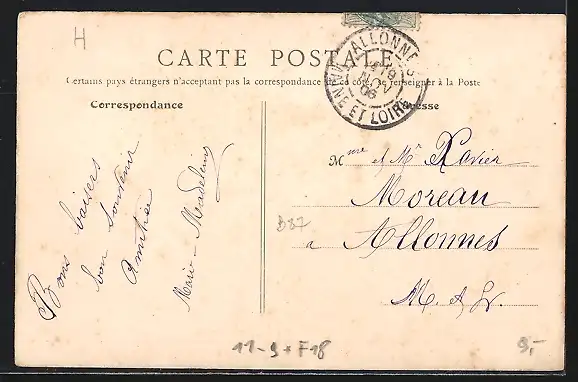 H
CARTE POSTALE
Certains pays étrangers n'acceptant pas la correspondance de ce côté, se renseigner à la Poste
Correspondance
Adresse
ALLONNE
19
NOV
06
MAINE ET LOIRE
Bons baisers
bon souvenir
Amitiés
Marie-Madeleine
Mme et Mr Xavier
Moreau
à Allonnes
M. et Lr.
B87
11-9 * F18
9,-